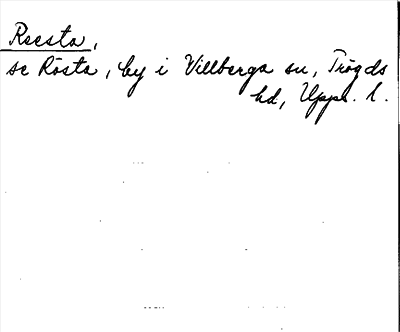 Reesta,
se Rösta, by i Villberga sn, Trögds
hd, Upps. l.